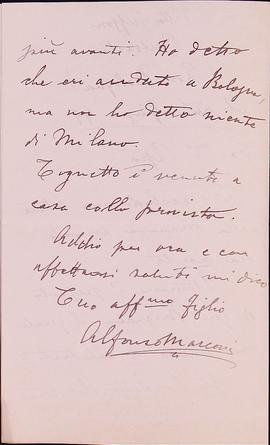 più avanti. Ho detto
che eri andato a Bologna,
ma non ho detto niente
di Milano.
Tognetto è venuto a
casa colla provista.
Addio per ora e con
affettuosi saluti mi dico
Tuo aff mo figlio
Alfonso Marconi